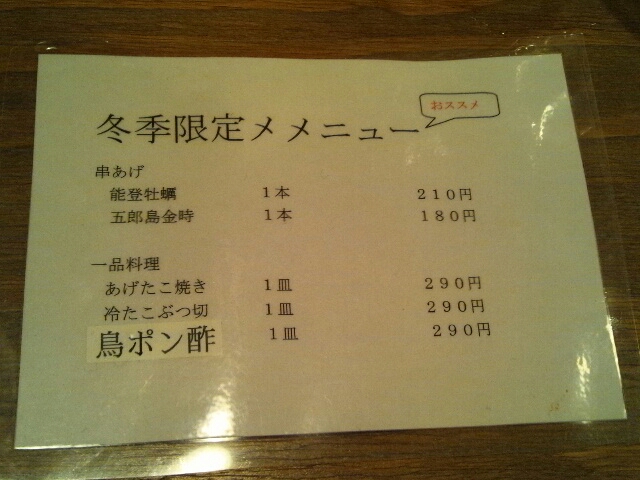 おススメ
冬季限定メメニュー
串あげ
能登牡蠣 1本 210円
五郎島金時 1本 180円
一品料理
あげたこ焼き 1皿 290円
冷たこぶつ切 1皿 290円
鳥ポン酢 1皿 290円